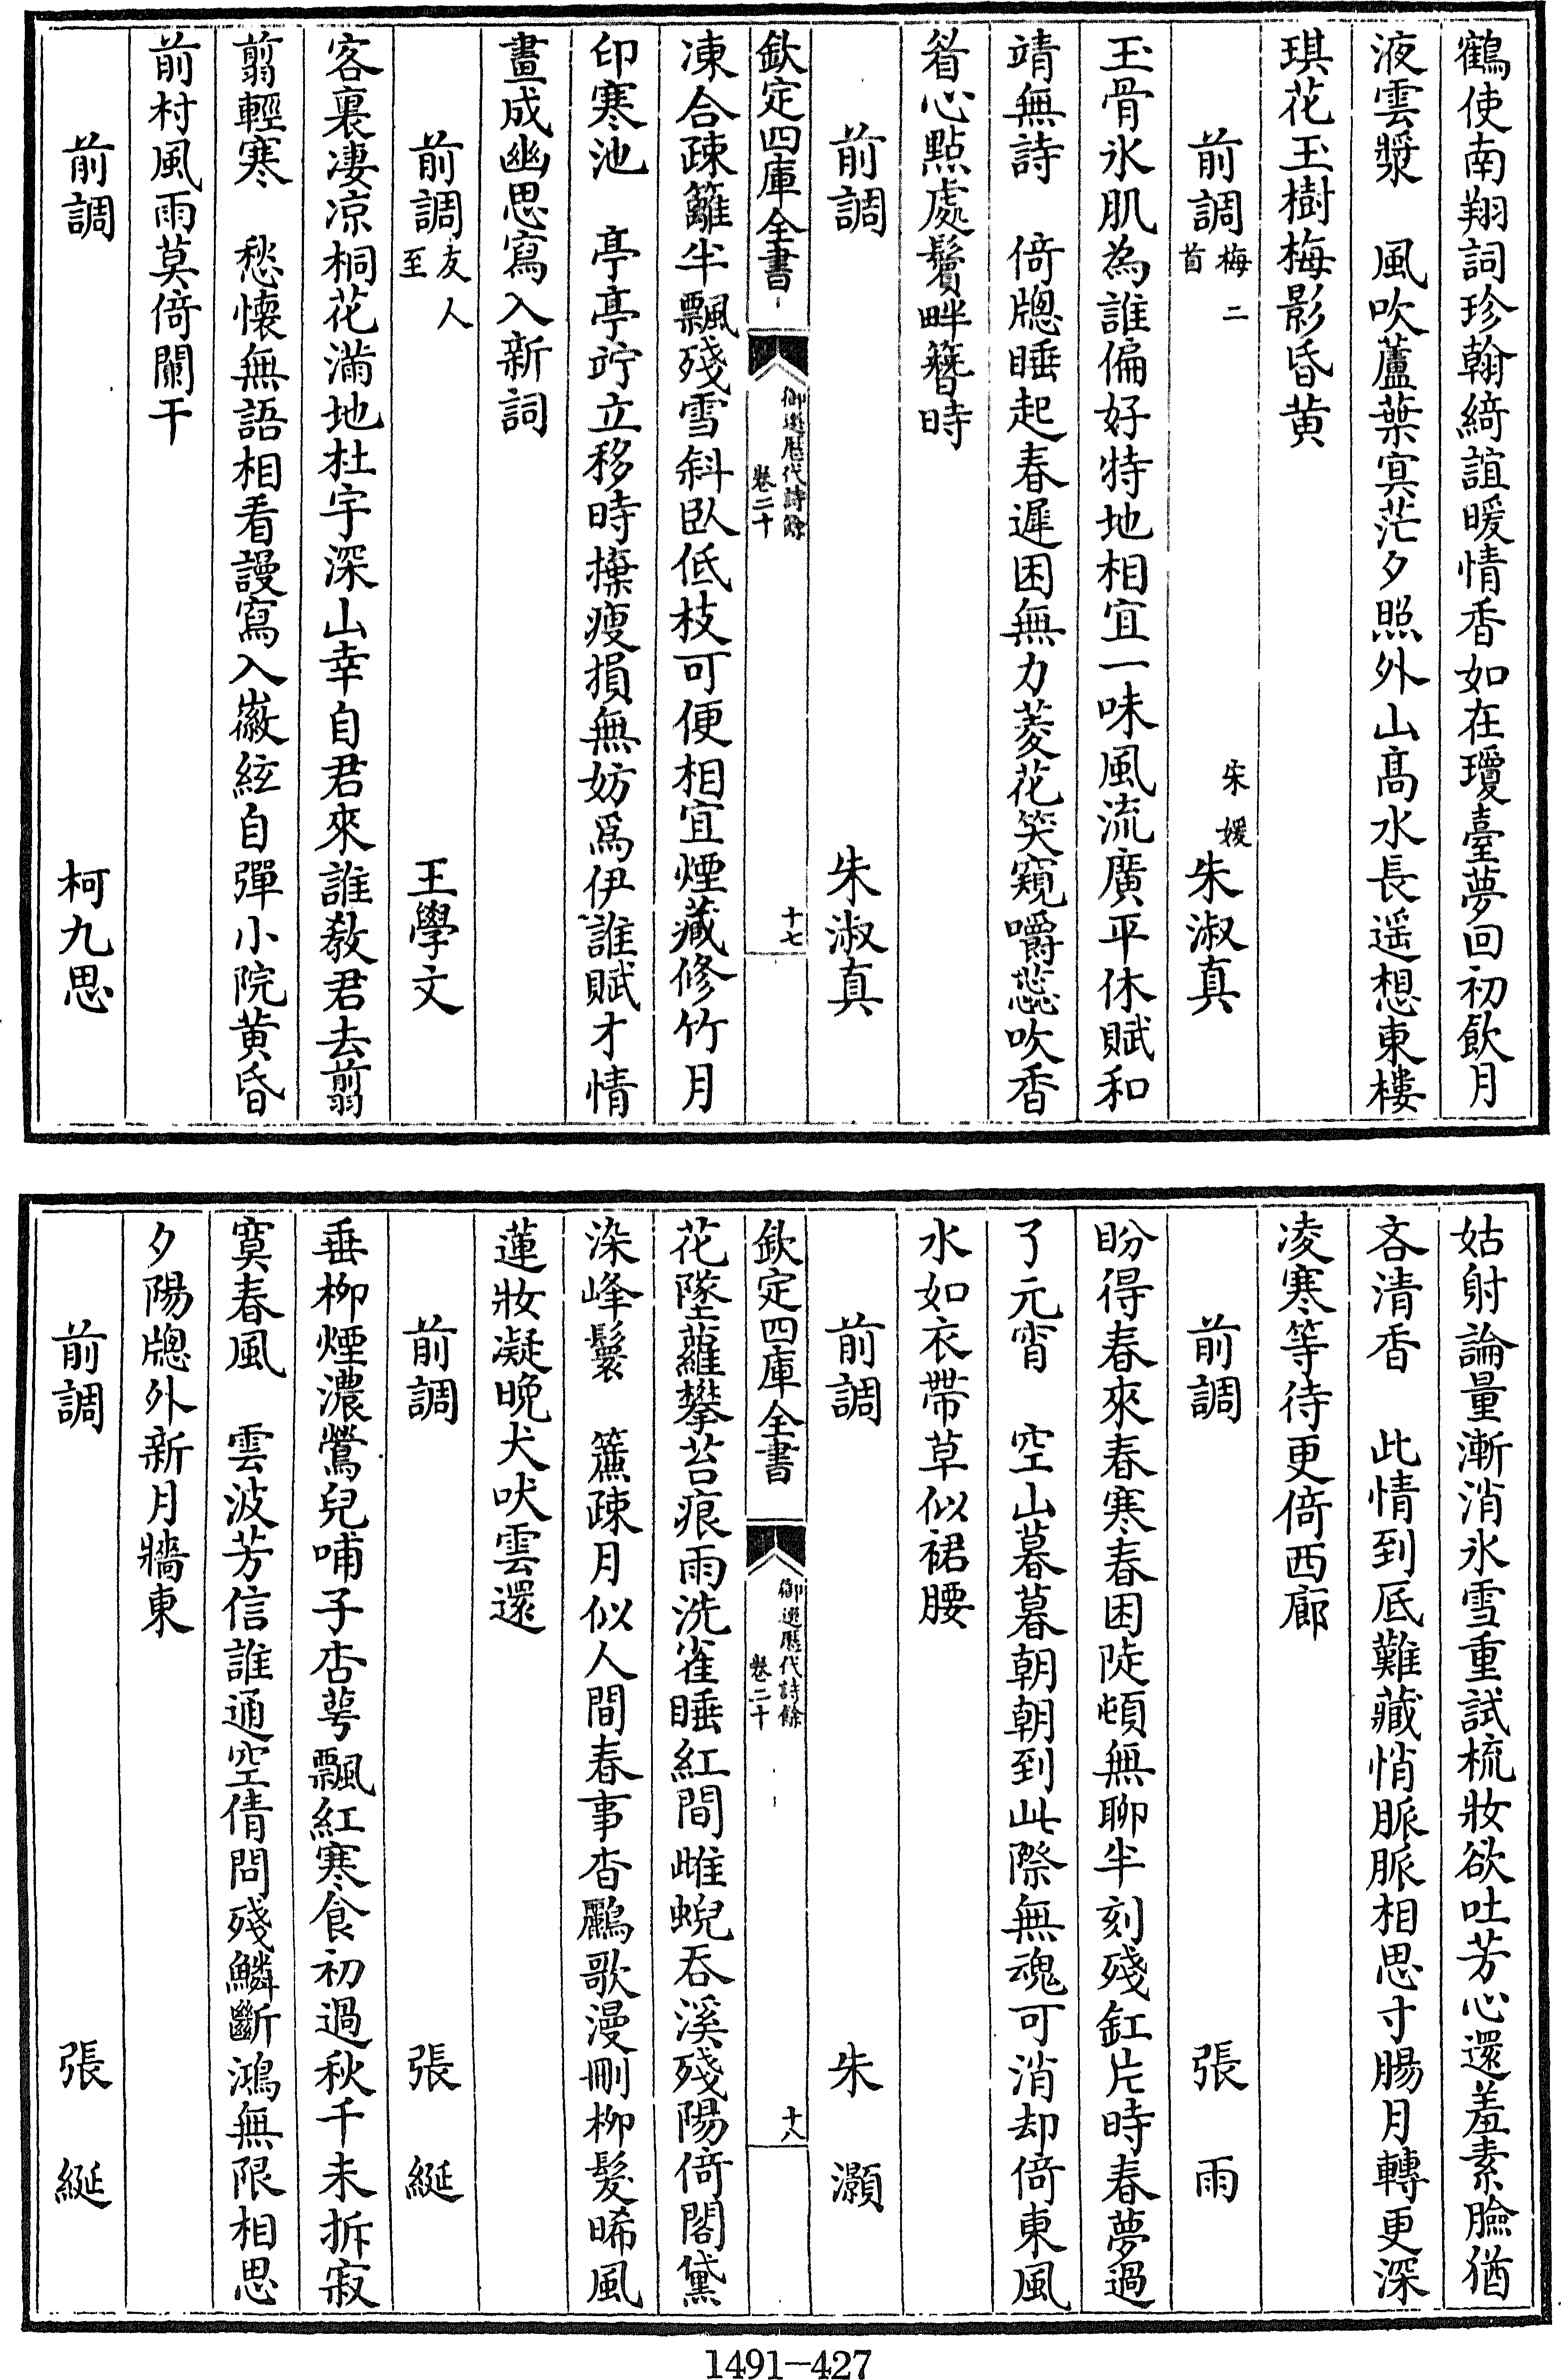 鶴使南翔詞珍翰綺誼暖情香如在瓊臺夢回初飲月
液雲漿　風吹蘆葉㝠茫夕照外山髙水長遥想東樓
琪花玉樹梅影昏黄
前調梅二首　宋媛朱淑真
玉骨氷肌為誰偏好特地相宜一味風流廣平休賦和
靖無詩　倚牕睡起春遲困無力菱花笑窺嚼蕊吹香
眉心點處鬢畔簪時
前調　朱淑真
欽定四庫全書
御選歷代詩餘
卷二十
十七
凍合疎籬半飄殘雪斜臥低枝可便相宜煙藏修竹月
印寒池　亭亭竚立移時㨿瘦損無妨為伊誰賦才情
畫成幽思寫入新詞
前調友人至　王學文
客裏凄凉桐花滿地杜宇深山幸自君來誰教君去翦
翦輕寒　愁懷無語相看謾寫入徽絃自彈小院黄昏
前村風雨莫倚闌干
前調　柯九思
姑射論量漸消氷雪重試梳妝欲吐芳心還羞素臉猶
吝清香　此情到底難藏悄脈脈相思寸腸月轉更深
凌寒等待更倚西廊
前調　張雨
盼得春來春寒春困陡頓無聊半刻殘釭片時春夢過
了元宵　空山暮暮朝朝到此際無魂可消却倚東風
水如衣帶草似裙腰
前調　朱灝
欽定四庫全書
御選歷代詩餘
卷二十
十八
花墜蘿攀苔痕雨洗雀睡紅間雌蜺吞溪殘陽倚閣黛
染峰鬟　簾疎月似人間春事杳鸝歌漫刪柳髮晞風
蓮妝凝晚犬吠雲還
前調　張綖
垂柳煙濃鶯兒哺子杏萼飄紅寒食初過秋千未拆寂
寞春風　雲波芳信誰通空倩問殘鱗斷鴻無限相思
夕陽牕外新月牆東
前調　張綖
1491—427